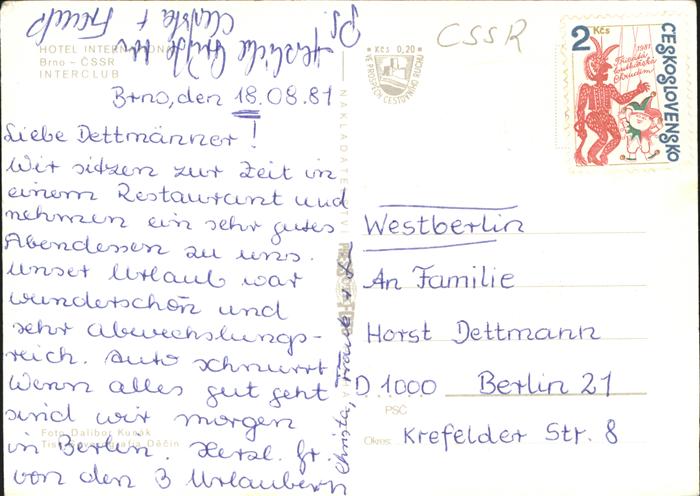 HOTEL INTERNATIONAL
Brno - ČSSR
INTERCLUB
Brno, den 18.08.81
Liebe Dettmänner!
Wir sitzen zur Zeit in
einem Restaurant und
nehmen ein sehr gutes
Abendessen zu uns.
Unser Urlaub war
wunderschön und
sehr abwechslungs-
reich. Auto schnurrt
Wenn alles gut geht
sind wir morgen
in Berlin. Herzl. Gr.
von den 3 Urlaubern
Christa,
PS.
Herzliche Grüße
Christa +
Foto Dalibor Kusák
Děčín
NAKLADATELSTVÍ
Kčs 0,20
CSSR
2 Kčs
1981
ČESKOSLOVENSKO
Westberlin
An Familie
Horst Dettmann
D 1000 Berlin 21
PSČ
Okres Krefelder Str. 8